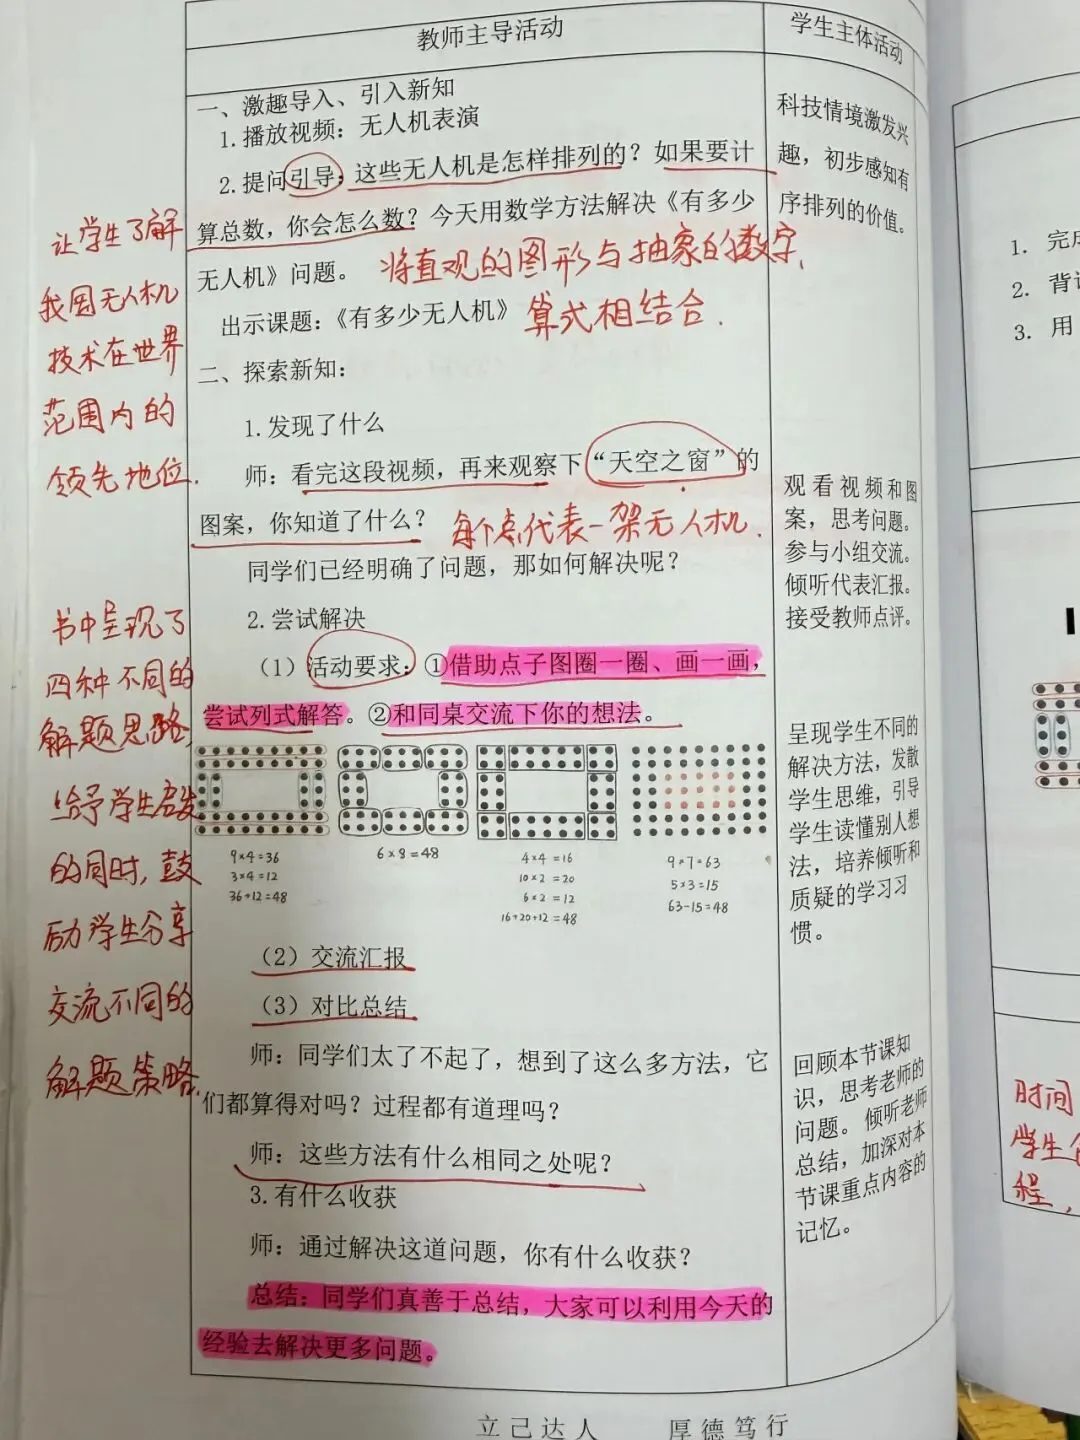 教师主导活动
学生主体活动
一、激趣导入、引入新知
1.播放视频：无人机表演
2.提问引导：这些无人机是怎样排列的？如果要计
算总数，你会怎么数？今天用数学方法解决《有多少
无人机》问题。
将直观的图形与抽象的数字、
出示课题：《有多少无人机》
算式相结合.
二、探索新知：
1.发现了什么
师：看完这段视频，再来观察下“天空之窗”的
图案，你知道了什么？
每个点代表一架无人机.
同学们已经明确了问题，那如何解决呢？
2.尝试解决
（1）活动要求：①借助点子图圈一圈、画一画，
尝试列式解答。②和同桌交流下你的想法。
9×4=36
3×4=12
36+12=48
6×8=48
4×4=16
10×2=20
6×2=12
16+20+12=48
9×7=63
5×3=15
63-15=48
（2）交流汇报
（3）对比总结
师：同学们太了不起了，想到了这么多方法，它
们都算得对吗？过程都有道理吗？
师：这些方法有什么相同之处呢？
3.有什么收获
师：通过解决这道问题，你有什么收获？
总结：同学们真善于总结，大家可以利用今天的
经验去解决更多问题。
科技情境激发兴
趣，初步感知有
序排列的价值。
观看视频和图
案，思考问题。
参与小组交流。
倾听代表汇报。
接受教师点评。
呈现学生不同的
解决方法，发散
学生思维，引导
学生读懂别人想
法，培养倾听和
质疑的学习习
惯。
回顾本节课知
识，思考老师的
问题。倾听老师
总结，加深对本
节课重点内容的
记忆。
让学生了解
我国无人机
技术在世界
范围内的
领先地位.
书中呈现了
四种不同的
解题思路,
给予学生启发
的同时,鼓
励学生分享
交流不同的
解题策略.
立己达人 厚德笃行
1. 完成
2. 背
3. 用
时间
学生
程，